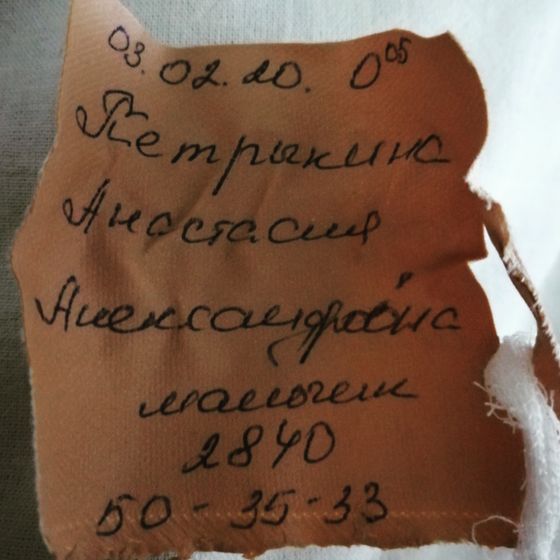 03.02.20. 0⁰⁵
Петрыкина
Анастасия
Александровна
мальчик
2840
50-35-33